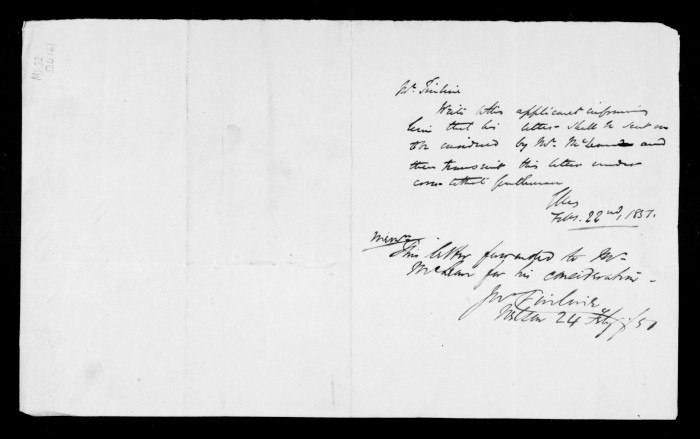 Mr. Tinline
Write this applicant informing
him that his letter shall be sent on
to be considered by Mr. McLean and
then transmit this letter under
cover to that gentleman
Feby. 22nd, 1851.
This letter forwarded to Mr.
McLean for his consideration.
Jn Tinline
Nelson 24 Feby /51
MS 32